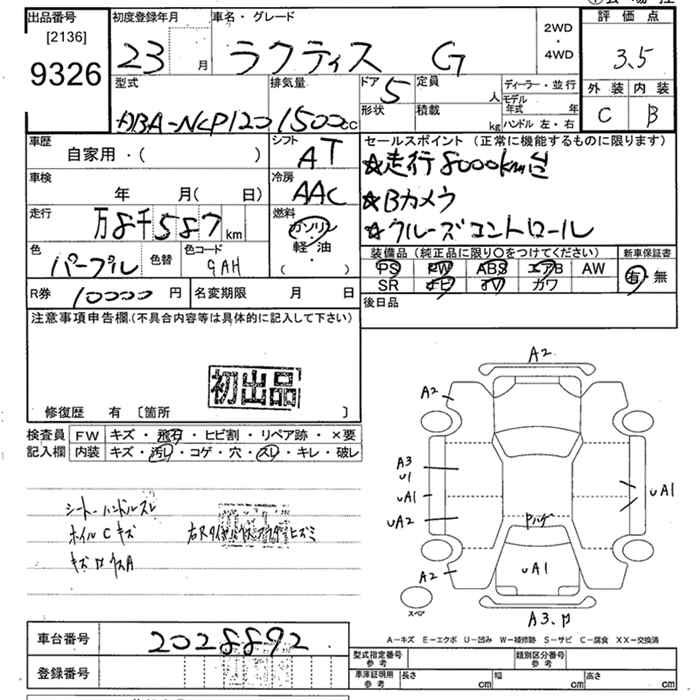 出品番号 初度登録年月 車名・グレード 2WD 評価点
[2136] 23 月 ラクティス G ・ 3.5
9326 4WD
型式 排気量 ドア 5 定員 人 ディーラー・並行 外装 内装
DBA-NCP120 1500cc 形状 積載 kg モデル年式 年 C B
ハンドル 左・右
車歴 シフト セールスポイント (正常に機能するものに限ります)
自家用・( ) AT ☆走行8000km台
車検 冷房 ☆Bカメラ
年 月( 日) AAC ☆クルーズコントロール
走行 燃料
万8千587km ガソリン
軽油
( ・ )
色 色替 色コード 装備品 (純正品に限り○をつけてください) 新車保証書
パープル 9AH PS PW ABS エアB AW 有・無
R券 10000円 名変期限 月 日 SR TV カワ
後日品
注意事項申告欄.(不具合内容等は具体的に記入して下さい)
初出品
修復歴 有 〔箇所 〕
検査員 FW キズ・飛石・ヒビ割・リペア跡・×要
記入欄 内装 キズ・汚レ・コゲ・穴・スレ・キレ・破レ
シート・ハンドルスレ
ホイルCキズ
A2
A2
A3
U1
UA1 UA1
UA2
UA1
A2
スペア
A3.P
A-キズ E-エクボ U-凹み W-補修跡 S-サビ C-腐食 XX-交換済
車台番号 2028892
登録番号
型式指定番号 参考 類別区分番号 参考
車庫証明用 参考 長さ cm 幅 cm 高さ cm